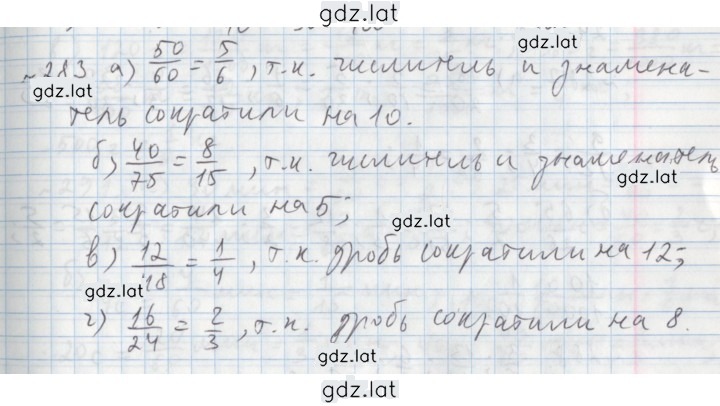 gdz.lat
gdz.lat
№283 а) 50/60 = 5/6, т.к. числитель и знамена-
gdz.lat
тель сократили на 10.
б) 40/75 = 8/15, т.к. числитель и знаменатель
gdz.lat
сократили на 5;
gdz.lat
в) 12/18 = 1/4, т.к. дробь сократили на 12;
gdz.lat
г) 16/24 = 2/3, т.к. дробь сократили на 8.
gdz.lat
gdz.lat